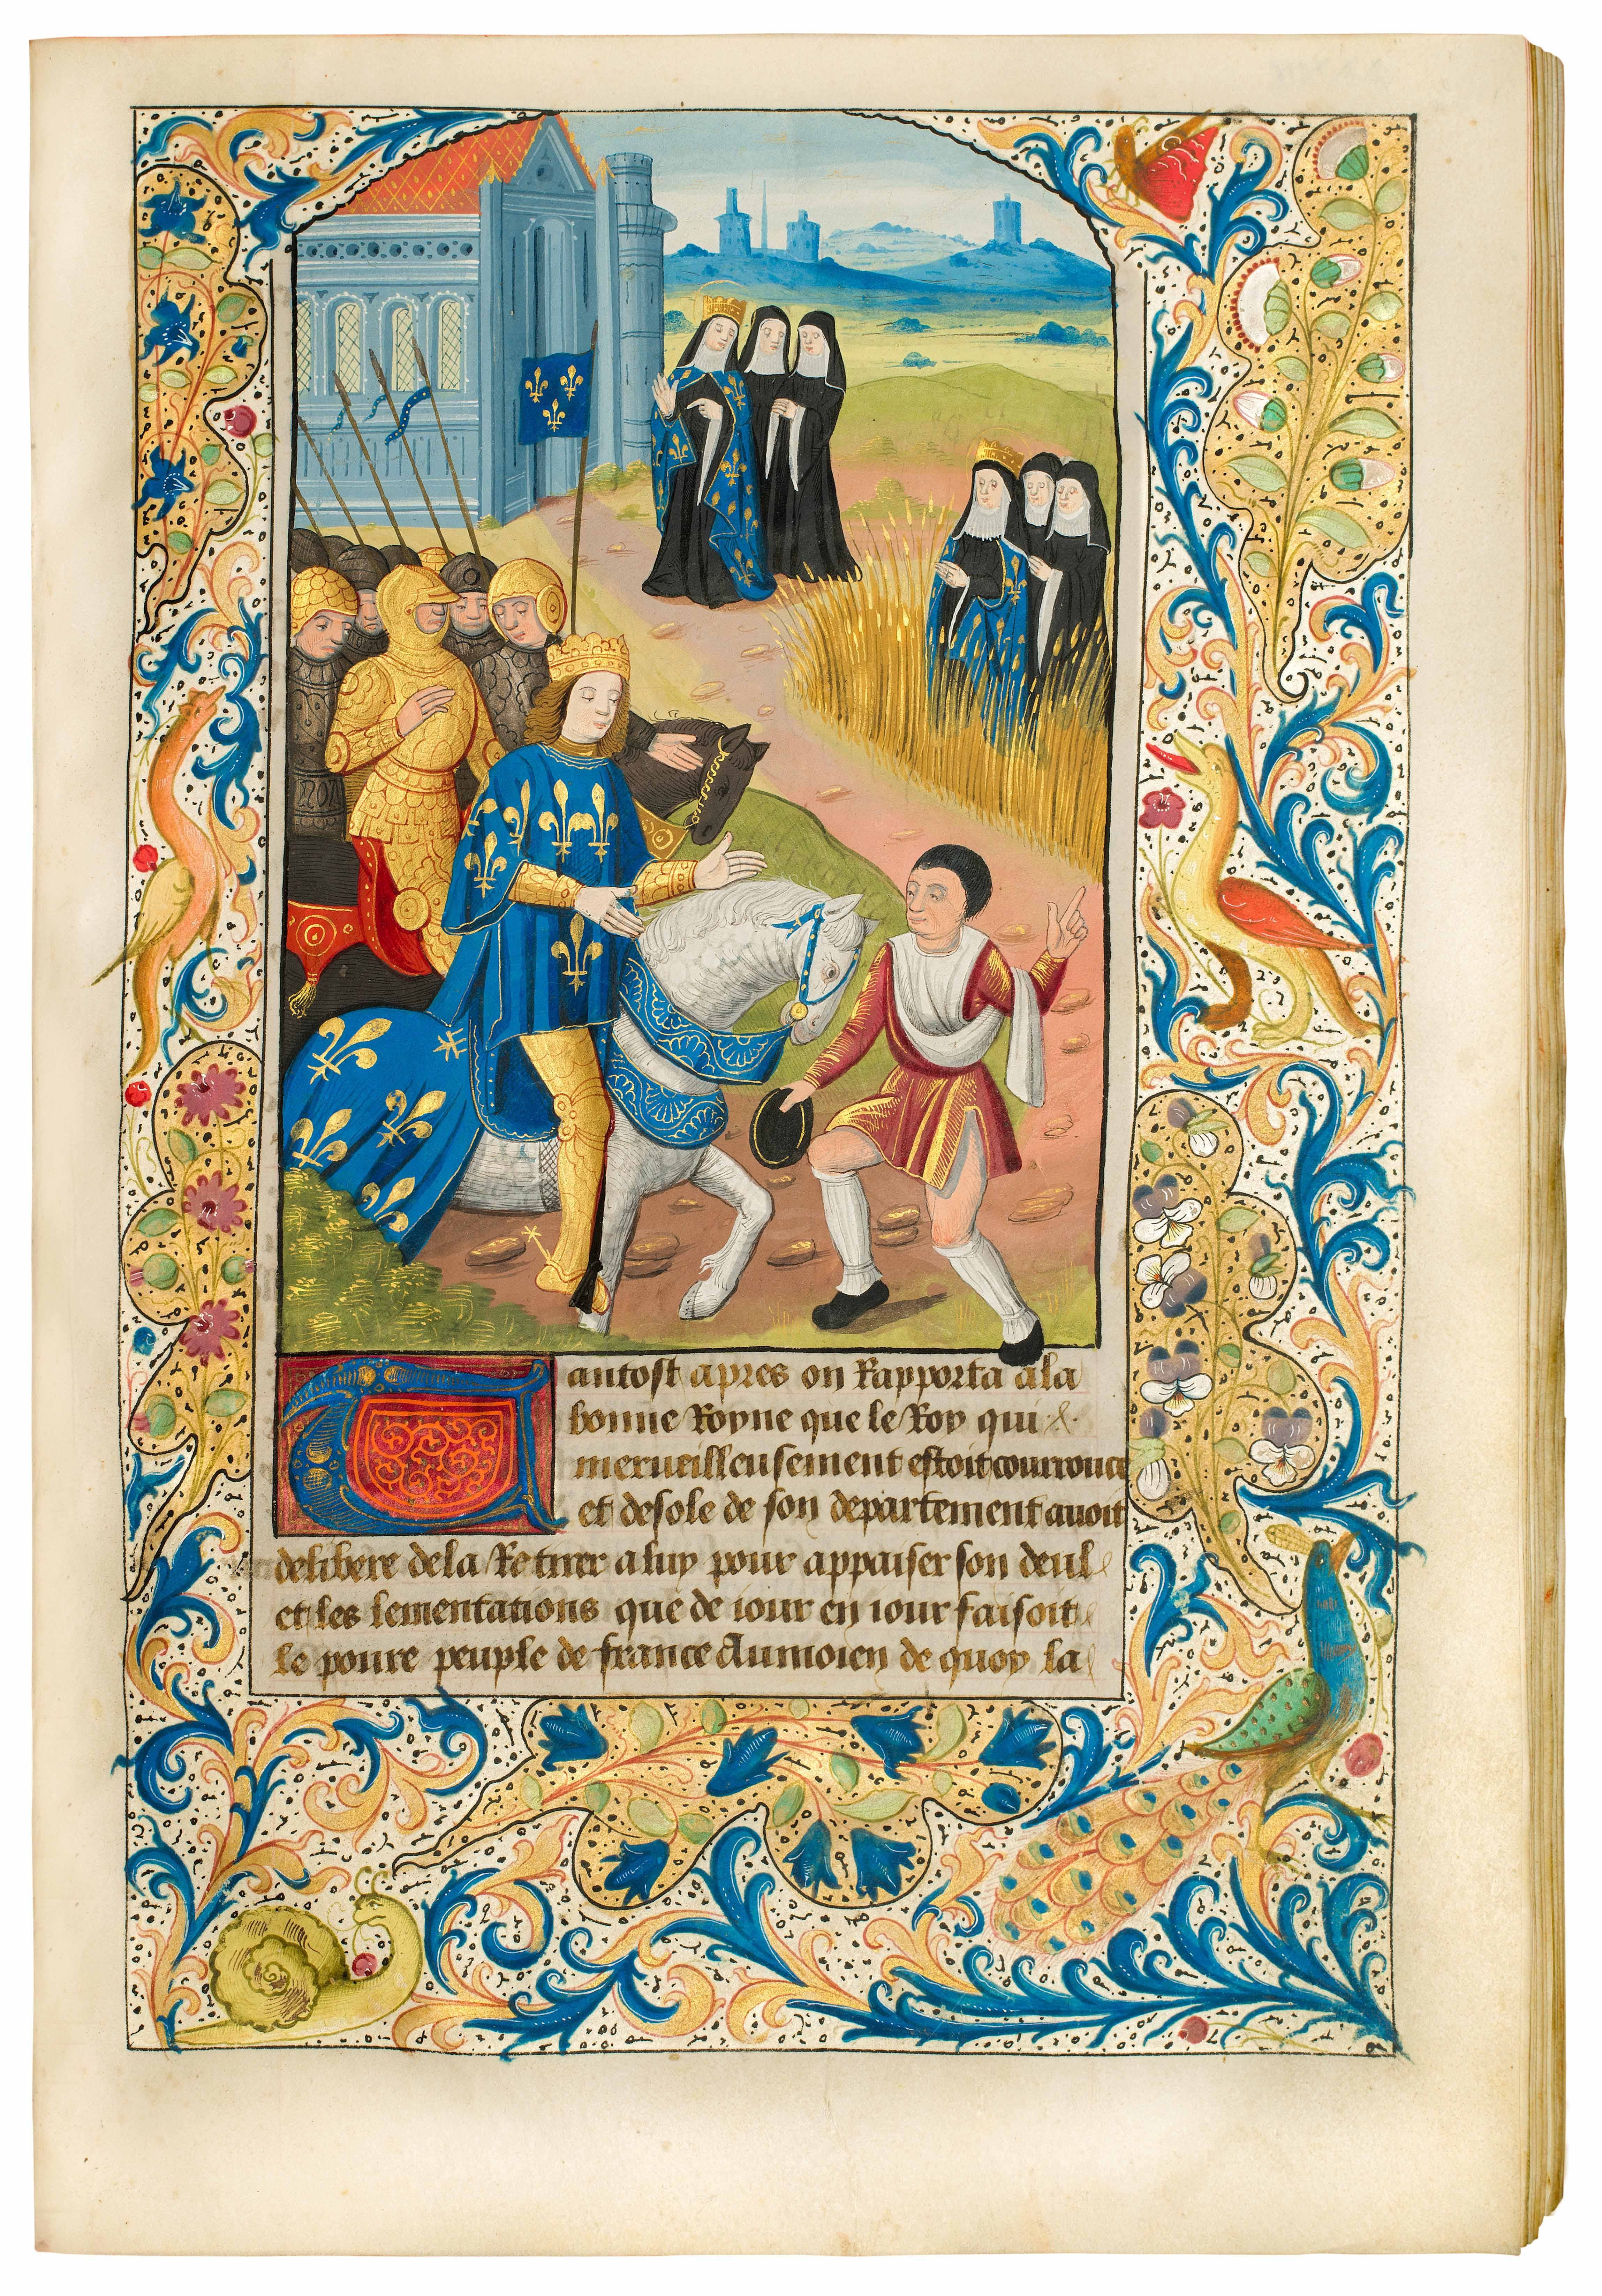 Tantost apres on Rapporta a la
bonne Royne que le Roy qui
merueilleusement estoit courrouce
et desole de son departement auoit
delibere de la Retirer a luy pour appaiser son deul
et les lementations que de iour en iour faisoit
le poure peuple de france Aumoien de quoy la